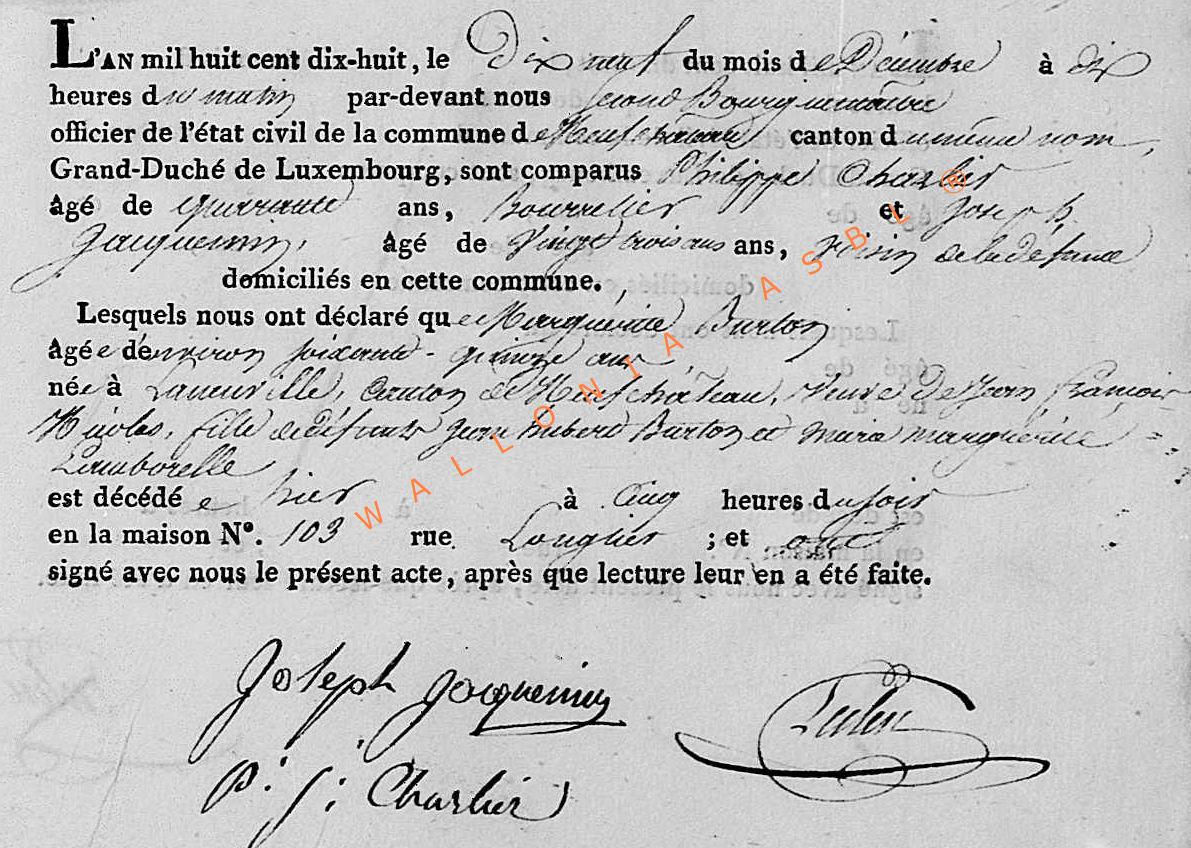 L'AN mil huit cent dix-huit, le Dix neuf du mois de Décembre à dix
heures du matin par-devant nous second Bourguemaitre
officier de l'état civil de la commune de Neufchateau canton du même nom,
Grand-Duché de Luxembourg, sont comparus Philippe Charlier
âgé de quarante ans, Bourrelier et Joseph
Jacquemin, âgé de Vingt trois ans ans, voisin de la défunte
domiciliés en cette commune.
Lesquels nous ont déclaré que Marguerite Burton
âgée d'environ soixante-quinze ans
née à Laneuville, Canton de Neufchâteau, veuve de Jean François
Nicolas, fille de défunts Jean hubert Burton et marie marguerite
Lamborelle
est décédée hier à Cinq heures du soir
en la maison N°. 103 rue Longlier ; et ont
signé avec nous le présent acte, après que lecture leur en a été faite.
WALLONIA ASBL ®
Joseph Jacquemin
P. J. Charlier